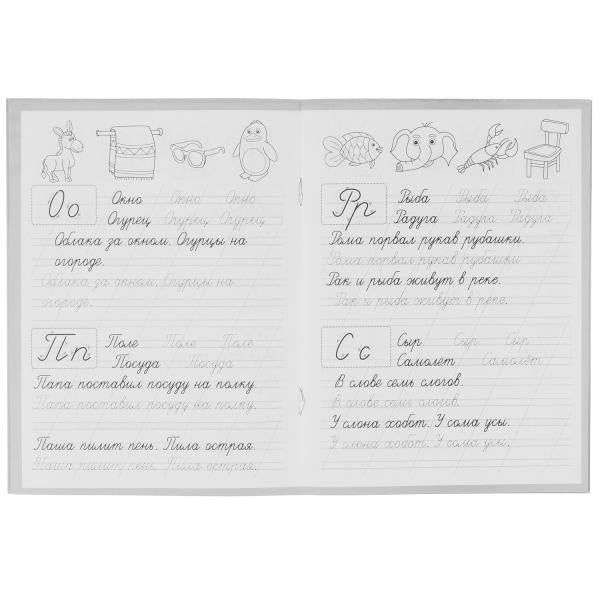 Оо Окно Окно Окно
Огурец Огурец Огурец
Облака за окном. Огурцы на
огороде.
Облака за окном. Огурцы на
огороде.
Пп Поле Поле Поле
Посуда Посуда
Папа поставил посуду на полку.
Папа поставил посуду на полку.
Паша пилит пень. Пила острая.
Паша пилит пень. Пила острая.
Рр Рыба Рыба Рыба
Радуга Радуга Радуга
Рома порвал рукав рубашки.
Рома порвал рукав рубашки
Рак и рыба живут в реке.
Рак и рыба живут в реке.
Сс Сыр Сыр Сыр
Самолёт Самолёт
В слове семь слогов.
В слове семь слогов.
У слона хобот. У сома усы.
У слона хобот. У сома усы.